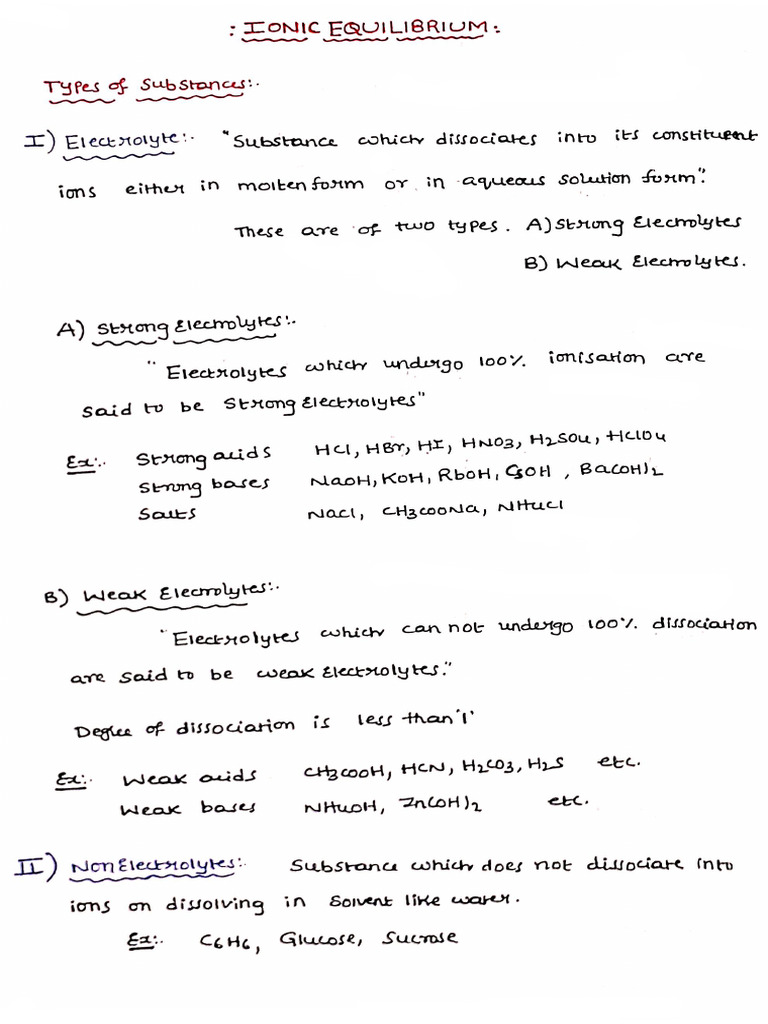 : IONIC EQUILIBRIUM :
Types of Substances:-
I) Electrolyte:- "Substance which dissociates into its constituent
ions either in molten form or in aqueous solution form".
These are of two types. A) Strong Electrolytes
B) Weak Electrolytes.
A) Strong Electrolytes:-
"Electrolytes which undergo 100% ionisation are
said to be Strong Electrolytes"
Ex:- Strong acids HCl, HBr, HI, HNO3, H2SO4, HClO4
Strong bases NaOH, KOH, RbOH, CsOH, Ba(OH)2
Salts NaCl, CH3COONa, NH4Cl
B) Weak Electrolytes:-
"Electrolytes which can not undergo 100% dissociation
are said to be weak Electrolytes."
Degree of dissociation is less than '1'
Ex:- Weak acids CH3COOH, HCN, H2CO3, H2S etc.
Weak bases NH4OH, Zn(OH)2 etc.
II) Non Electrolytes:- Substance which does not dissociate into
ions on dissolving in Solvent like water.
Ex:- C6H6, Glucose, Sucrose